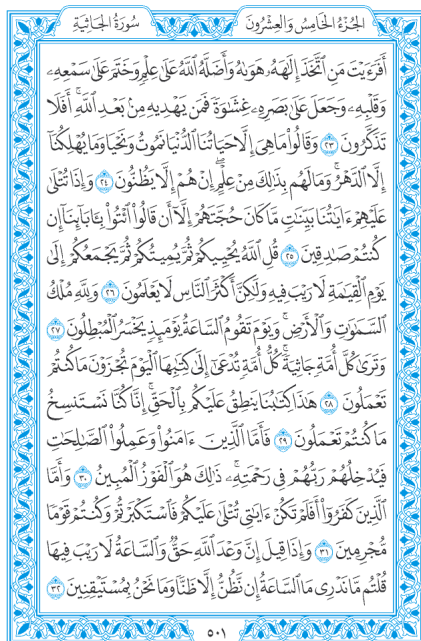 سُورَةُ الجَاثِيَةِ
الجُزْءُ الخَامِسُ وَالعِشْرُونَ
أَفَرَءَيْتَ مَنِ ٱتَّخَذَ إِلَٰهَهُۥ هَوَىٰهُ وَأَضَلَّهُ ٱللَّهُ عَلَىٰ عِلْمٖ وَخَتَمَ عَلَىٰ سَمْعِهِۦ
وَقَلْبِهِۦ وَجَعَلَ عَلَىٰ بَصَرِهِۦ غِشَٰوَةٗ فَمَن يَهْدِيهِ مِنۢ بَعْدِ ٱللَّهِۚ أَفَلَا
تَذَكَّرُونَ ٢٣ وَقَالُواْ مَا هِيَ إِلَّا حَيَاتُنَا ٱلدُّنْيَا نَمُوتُ وَنَحْيَا وَمَا يُهْلِكُنَآ
إِلَّا ٱلدَّهْرُۚ وَمَا لَهُم بِذَٰلِكَ مِنْ عِلْمٍۖ إِنْ هُمْ إِلَّا يَظُنُّونَ ٢٤ وَإِذَا تُتْلَىٰ
عَلَيْهِمْ ءَايَٰتُنَا بَيِّنَٰتٖ مَّا كَانَ حُجَّتَهُمْ إِلَّآ أَن قَالُواْ ٱئْتُواْ بِـَٔابَآئِنَآ إِن
كُنتُمْ صَٰدِقِينَ ٢٥ قُلِ ٱللَّهُ يُحْيِيكُمْ ثُمَّ يُمِيتُكُمْ ثُمَّ يَجْمَعُكُمْ إِلَىٰ
يَوْمِ ٱلْقِيَٰمَةِ لَا رَيْبَ فِيهِ وَلَٰكِنَّ أَكْثَرَ ٱلنَّاسِ لَا يَعْلَمُونَ ٢٦ وَلِلَّهِ مُلْكُ
ٱلسَّمَٰوَٰتِ وَٱلْأَرْضِۚ وَيَوْمَ تَقُومُ ٱلسَّاعَةُ يَوْمَئِذٖ يَخْسَرُ ٱلْمُبْطِلُونَ ٢٧
وَتَرَىٰ كُلَّ أُمَّةٖ جَاثِيَةٗۚ كُلُّ أُمَّةٖ تُدْعَىٰٓ إِلَىٰ كِتَٰبِهَا ٱلْيَوْمَ تُجْزَوْنَ مَا كُنتُمْ
تَعْمَلُونَ ٢٨ هَٰذَا كِتَٰبُنَا يَنطِقُ عَلَيْكُم بِٱلْحَقِّۚ إِنَّا كُنَّا نَسْتَنسِخُ
مَا كُنتُمْ تَعْمَلُونَ ٢٩ فَأَمَّا ٱلَّذِينَ ءَامَنُواْ وَعَمِلُواْ ٱلصَّٰلِحَٰتِ
فَيُدْخِلُهُمْ رَبُّهُمْ فِي رَحْمَتِهِۦۚ ذَٰلِكَ هُوَ ٱلْفَوْزُ ٱلْمُبِينُ ٣٠ وَأَمَّا
ٱلَّذِينَ كَفَرُوٓاْ أَفَلَمْ تَكُنْ ءَايَٰتِي تُتْلَىٰ عَلَيْكُمْ فَٱسْتَكْبَرْتُمْ وَكُنتُمْ قَوْمٗا
مُّجْرِمِينَ ٣١ وَإِذَا قِيلَ إِنَّ وَعْدَ ٱللَّهِ حَقّٞ وَٱلسَّاعَةُ لَا رَيْبَ فِيهَا
قُلْتُم مَّا نَدْرِي مَا ٱلسَّاعَةُ إِن نَّظُنُّ إِلَّا ظَنّٗا وَمَا نَحْنُ بِمُسْتَيْقِنِينَ ٣٢
٥٠١